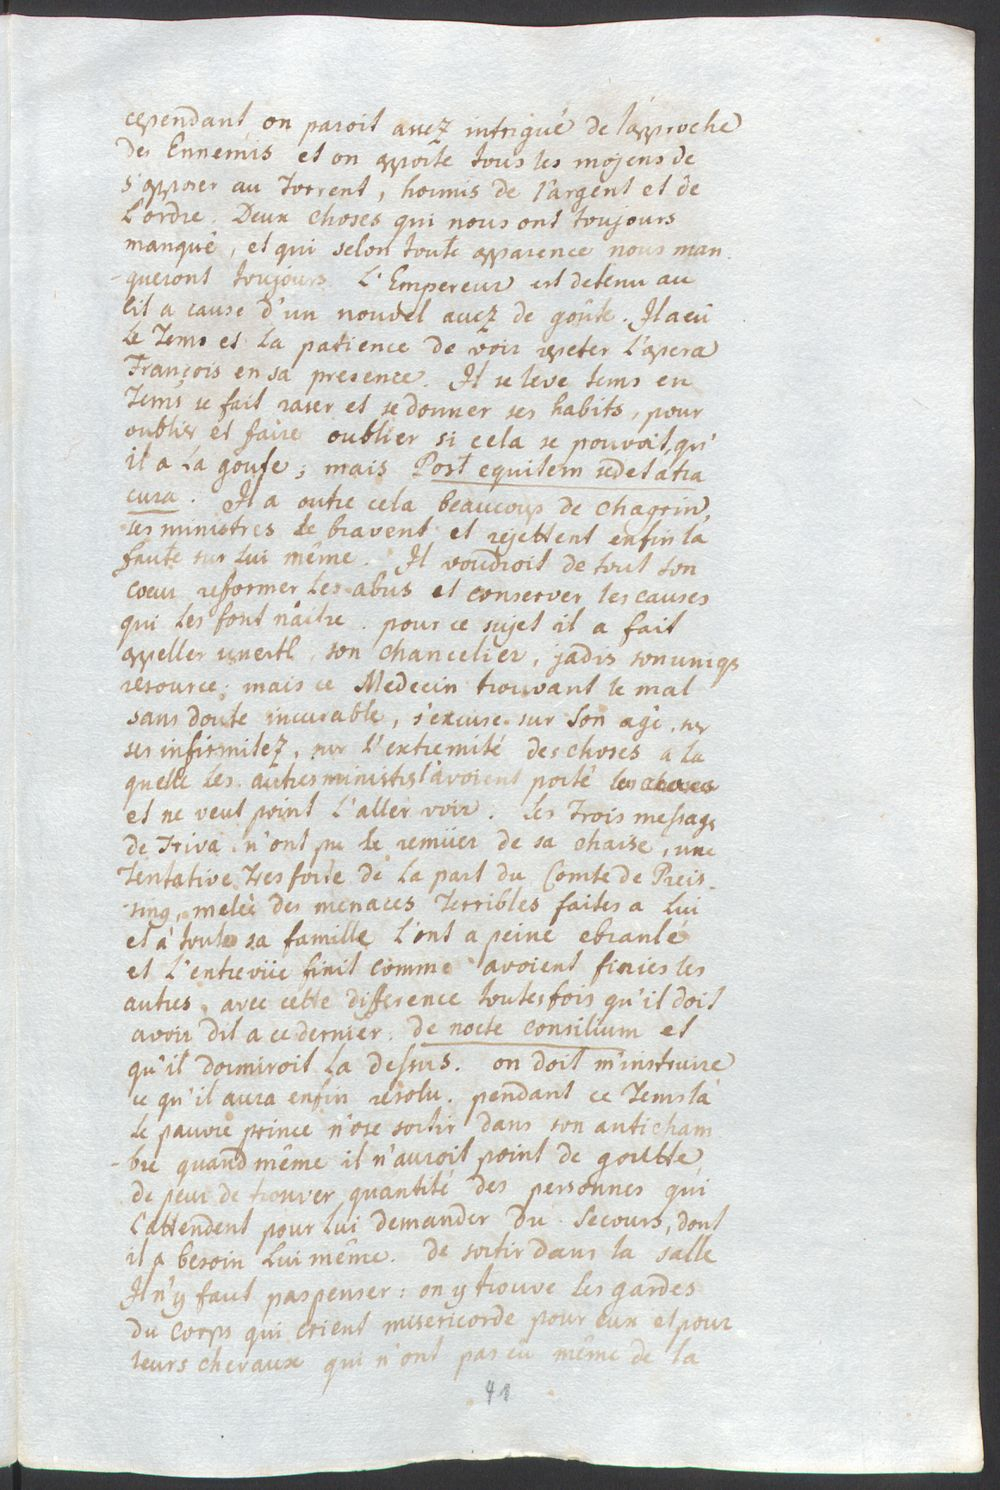 cependant on paroit assez intrigué de l'approche
des Ennemis et on apporte tous les mojens de
s'opposer au Torrent, hormis de l'argent et de
L'ordre. Deux choses qui nous ont toujours
manqué, et qui selon toute apparence nous man
-queront toujours. L'Empereur est detenu au
lit a cause d'un nouvel accez de goute. Il a eû
le Tems et la patience de voir repeter l'opera
François en sa presence. Il se leve tems en
Tems se fait raser et se donner ses habits, pour
oublier et faire oublier si cela se pouvoit, qu'
il a la goute; mais Post equitem sedet atra
cura. Il a outre cela beaucoup de chagrin,
ses ministres le bravent et rejettent enfin la
faute sur lui même. Il voudroit de tout son
coeur reformer les abus et conserver les causes
qui les font naitre. pour ce sujet il a fait
appeller unertl, son chancelier, jadis son uniqs
resource; mais ce Medecin trouvant le mal
sans doute incurable, s'excuse sur son age, sur
ses infirmitez, sur l'extremité des choses a la
quelle les autres ministres l'avoient porté
et ne veut point l'aller voir. les Trois messags
de Triva n'ont pu le remüer de sa chaise, une
Tentative tres forte de la part du Comte de Preis-
sing, melée des menaces Terribles faites a lui
et à toute sa famille l'ont a peine ebranlé
et l'entrevüe finit comme avoient finies les
autres, avec cette difference toutesfois qu'il doit
avoir dit a ce dernier: de nocte consilium et
qu'il dormiroit la dessus. on doit m'instruire
ce qu'il aura enfin resolu. pendant ce Tems là
le pauvre prince n'ose sortir dans son anticham
-bre quand même il n'auroit point de goutte,
de peur de trouver quantité des personnes qui
l'attendent pour lui demander du secours, dont
il a besoin lui même. De sortir dans la salle
Il n'y faut pas penser: on y trouve les gardes
du corps qui crient misericorde pour eux et pour
leurs chevaux qui n'ont pas eû même de la
41